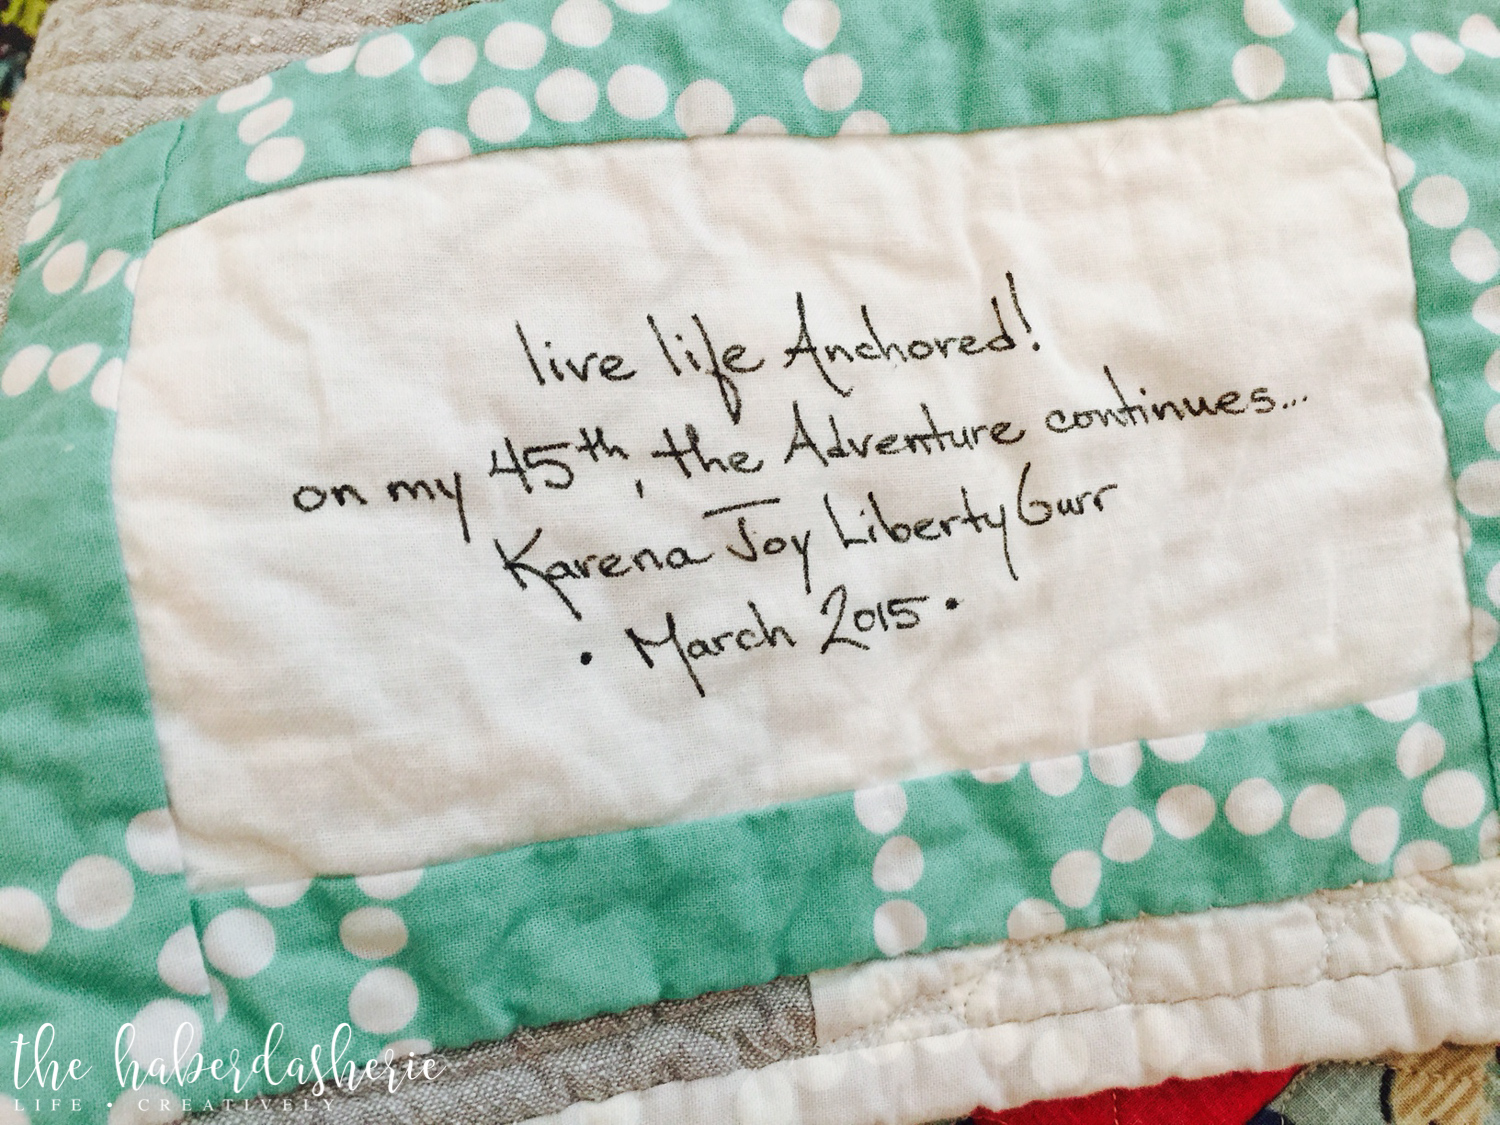 live life Anchored!
on my 45th, the Adventure continues...
Karena Joy Liberty Gurr
• March 2015 •
the haberdasherie
LIFE • CREATIVELY